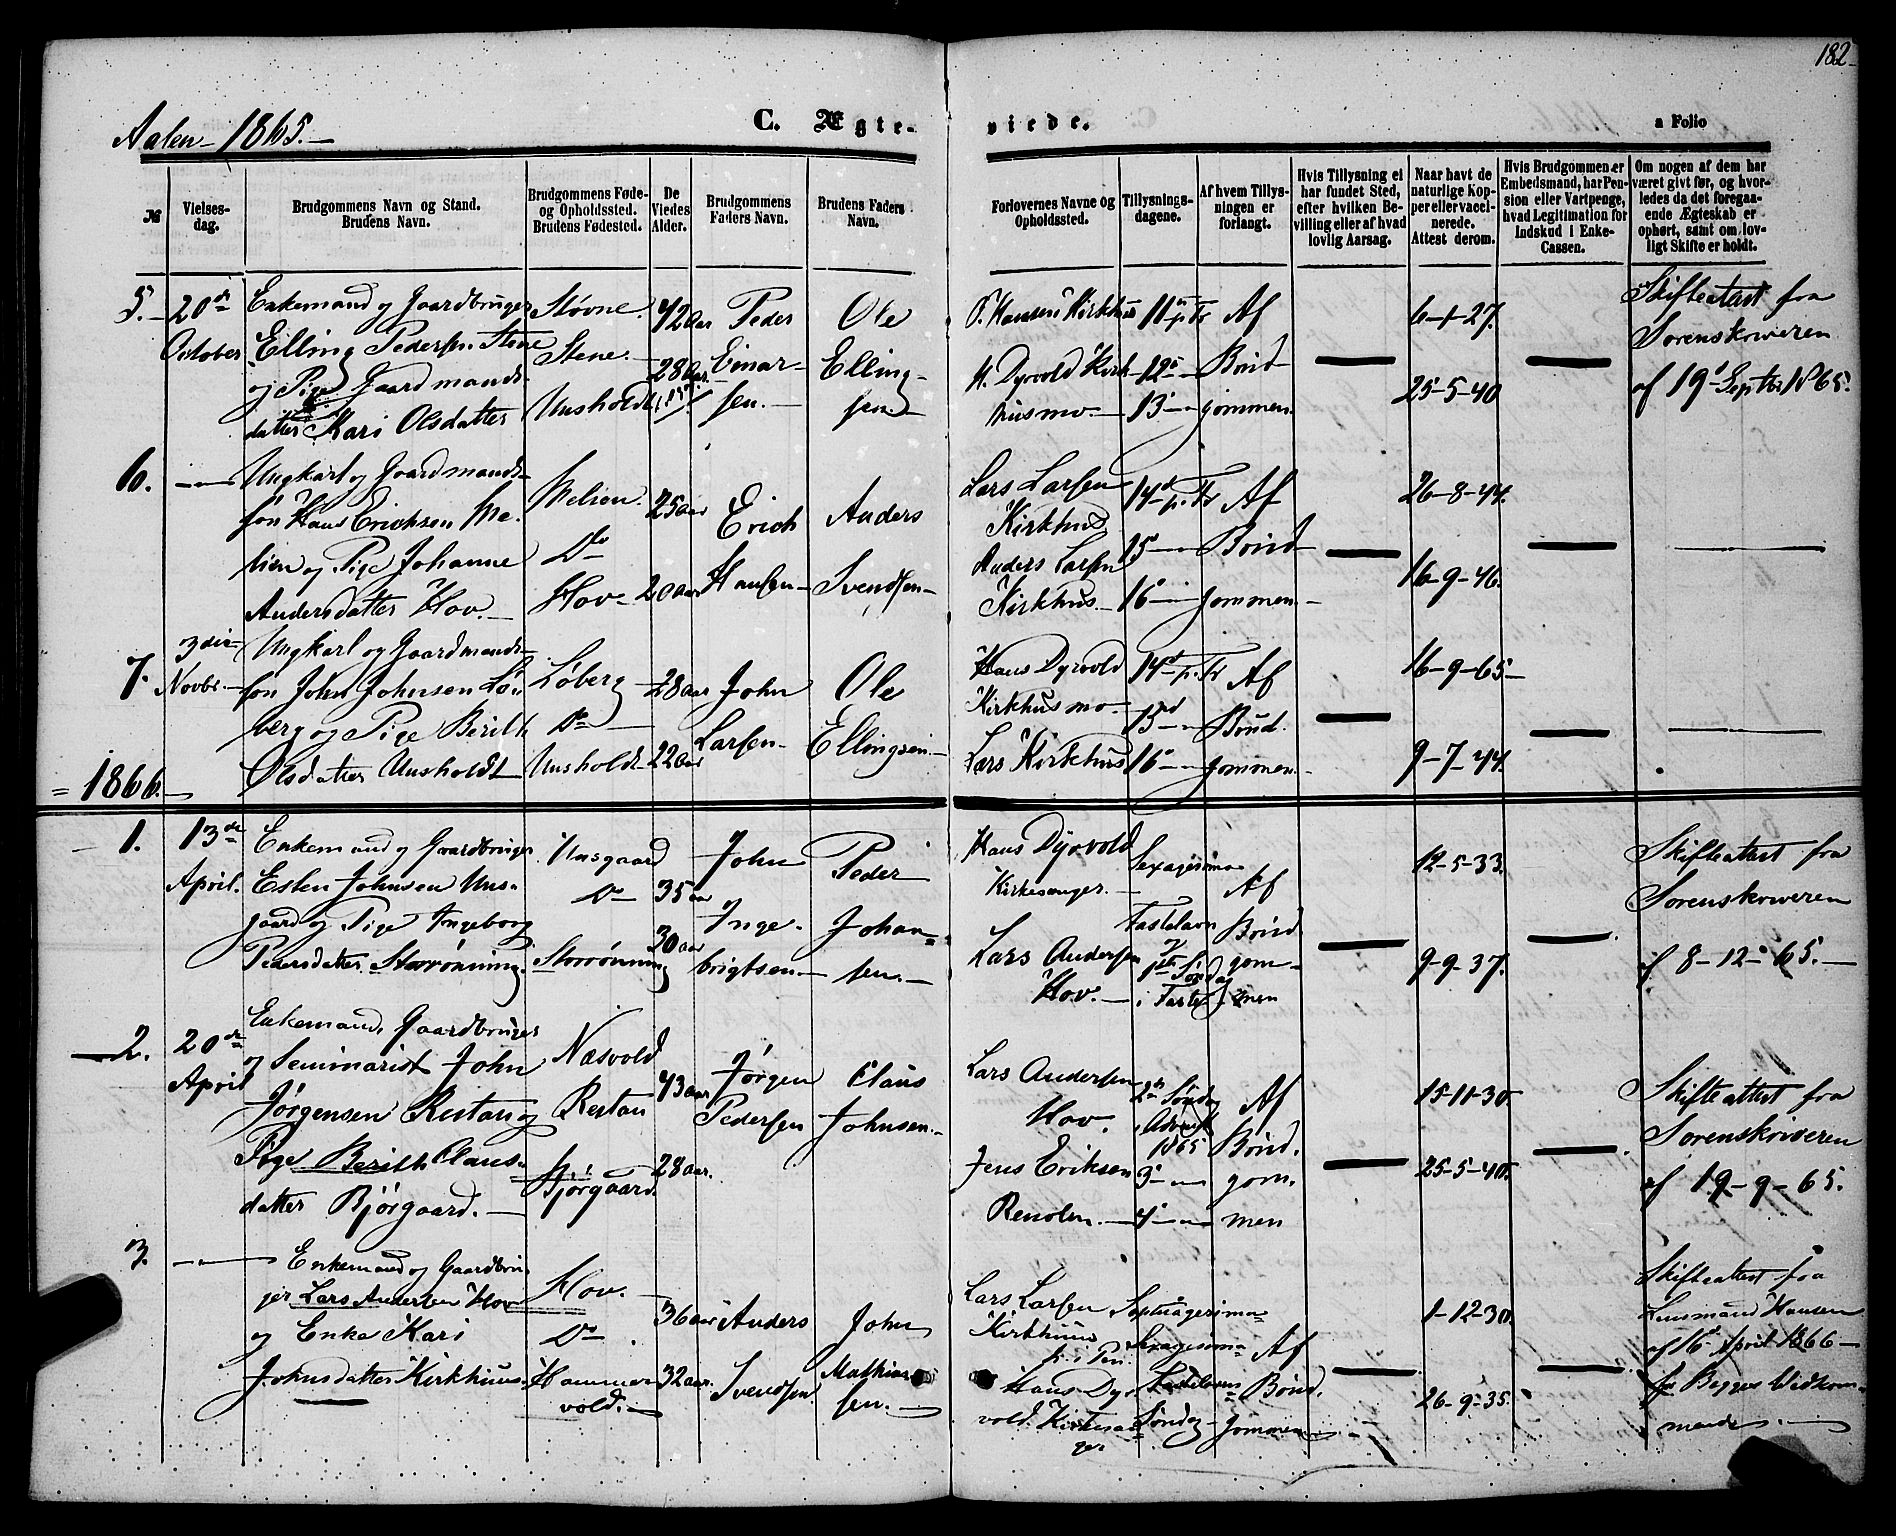 182
Aalen 1865.
C. Ægte-
viede.
a Folio
№
Vielses-
dag.
Brudgommens Navn og Stand.
Brudens Navn.
Brudgommens Føde-
og Opholdssted.
Brudens Fødested.
De
Viedes
Alder.
Brudgommens
Faders Navn.
Brudens Faders
Navn.
Forlovernes Navne og
Opholdssted.
Tillysnings-
dagene.
Af hvem Tillys-
ningen er
forlangt.
Hvis Tillysning ei
har fundet Sted,
efter hvilken Be-
villing eller af hvad
lovlig Aarsag.
Naar havt de
naturlige Kop-
per eller vacci-
nerede.
Attest derom.
Hvis Brudgommen er
Embedsmand, har Pen-
sion eller Vartpenge,
hvad Legitimation for
Indskud i Enke-
Cassen.
Om nogen af dem har
været givt før, og hvor-
ledes da det foregaa-
ende Ægteskab er
ophørt, samt om lov-
ligt Skifte er holdt.
5.
20de
October
Enkemand og Gaardbruger
Elling Pedersen Stene
og Pige Gaardmands-
datter Kari Olsdatter
Støvne.
Stene.
Unsholdt
42 Aar
28 Aar.
Peder
Einar-
sen.
Ole
Elling-
sen.
O. Hansen Kirkhus
H. Dyrvold Kirk-
husmo.
11 p. Tr
12
13
Af
Brud-
gommen.
6-1-27.
25-5-40
Skifteattest fra
Sorenskriveren
af 19 Septbr 1865.
6.
Ungkarl og Gaardmands-
søn Hans Erichsen Me-
lien og Pige Johanne
Andersdatter Hov.
Melien.
Do
Hov
25 aar
20 aar
Erich
Hansen
Anders
Svendsen
Lars Larsen
Kirkhus
Anders Larsen
Kirkhus.
14 p. Tr
15
16
Af
Brud-
gommen
26-8-44.
16-9-46.
7.
3die
Novbr.
Ungkarl og Gaardmands-
søn John Johnsen Lø-
berg og Pige Berith
Olsdatter Unsholdt
Løberg
Do
Unsholdt
28 aar
22 aar
John
Larsen
Ole
Ellingsen
Hans Dyrvold
Kirkhusmo.
Lars Kirkhus
14 p. Tr
15
16
Af
Brud-
gommen
16-9-65
9-7-44.
1866.
1.
13de
April.
Enkemand og Gaardbruger
Esten Johnsen Uns-
gaard og Pige Ingeborg
Pedersdatter Storrønning.
Unsgaard
Do
Storrønning
35 aar
30 aar
John
Inge-
brigtsen
Peder
Johan-
sen.
Hans Dyrvold
Kirkesanger.
Lars Andersen
Hov.
Sexagesima
Fastelavn
1ste Søndag
i Faste
Af
Brud-
gom-
men
12-5-33.
9-9-37.
Skifteattest fra
Sorenskriveren
af 8-12-65.
2.
20de
April
Enkemand, Gaardbruger
og Seminarist John
Jørgensen Restan og
Pige Berith Claus-
datter Bjørgaard.
Næsvold
Restan
Bjørgaard.
43 aar
28 aar.
Jørgen
Pedersen
Claus
Johnsen.
Lars Andersen
Hov.
Jens Eriksen
Renolen.
2n Søndag
i Advent
1865
3
4
Af
Brud.
gom.
men
15-11-30.
25-5-40.
Skifteattest fra
Sorenskriveren
af 19-9-65.
3.
Enkemand og Gaardbru-
ger Lars Andersen Hov
og Enke Kari
Johnsdatter Kirkhus.
Hov.
Do
Hammer-
vold.
36 aar
32 aar.
Anders
Svendsen
John
Mathias-
sen.
Lars Larsen
Kirkhus
Hans Dyr-
vold. Kirkesan-
ger
Septuagesima
Sexagesima
Fastelavns
Søndag
Af
Brud.
gommen
1-12-30.
26-9-35.
Skifteattest fra
Lensmand Hansen
af 16 April 1866
for Begges Vedkom-
mende.